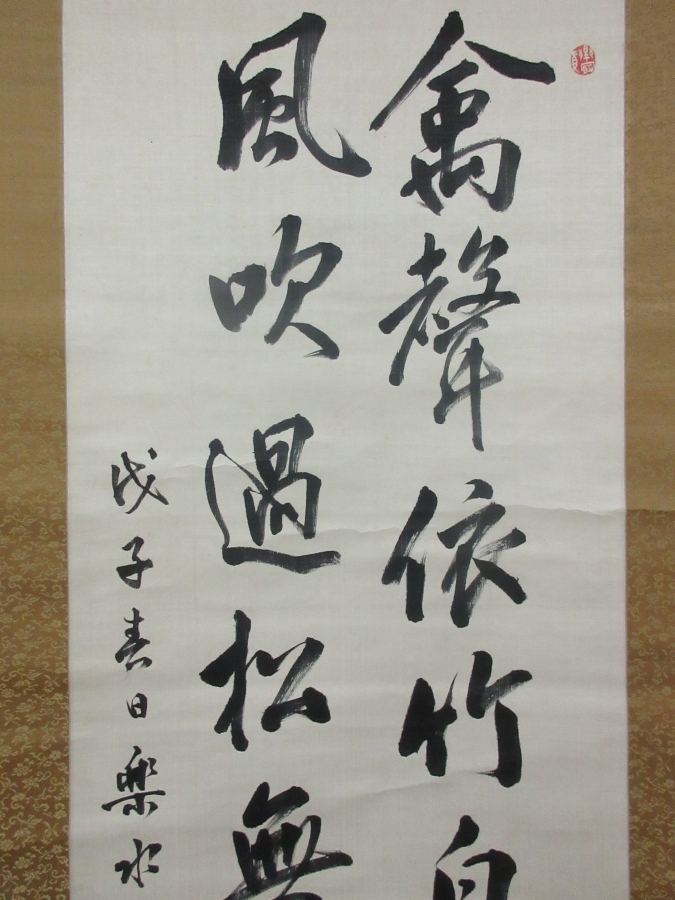 禽聲依竹自
風吹過松無
戊子春日樂水